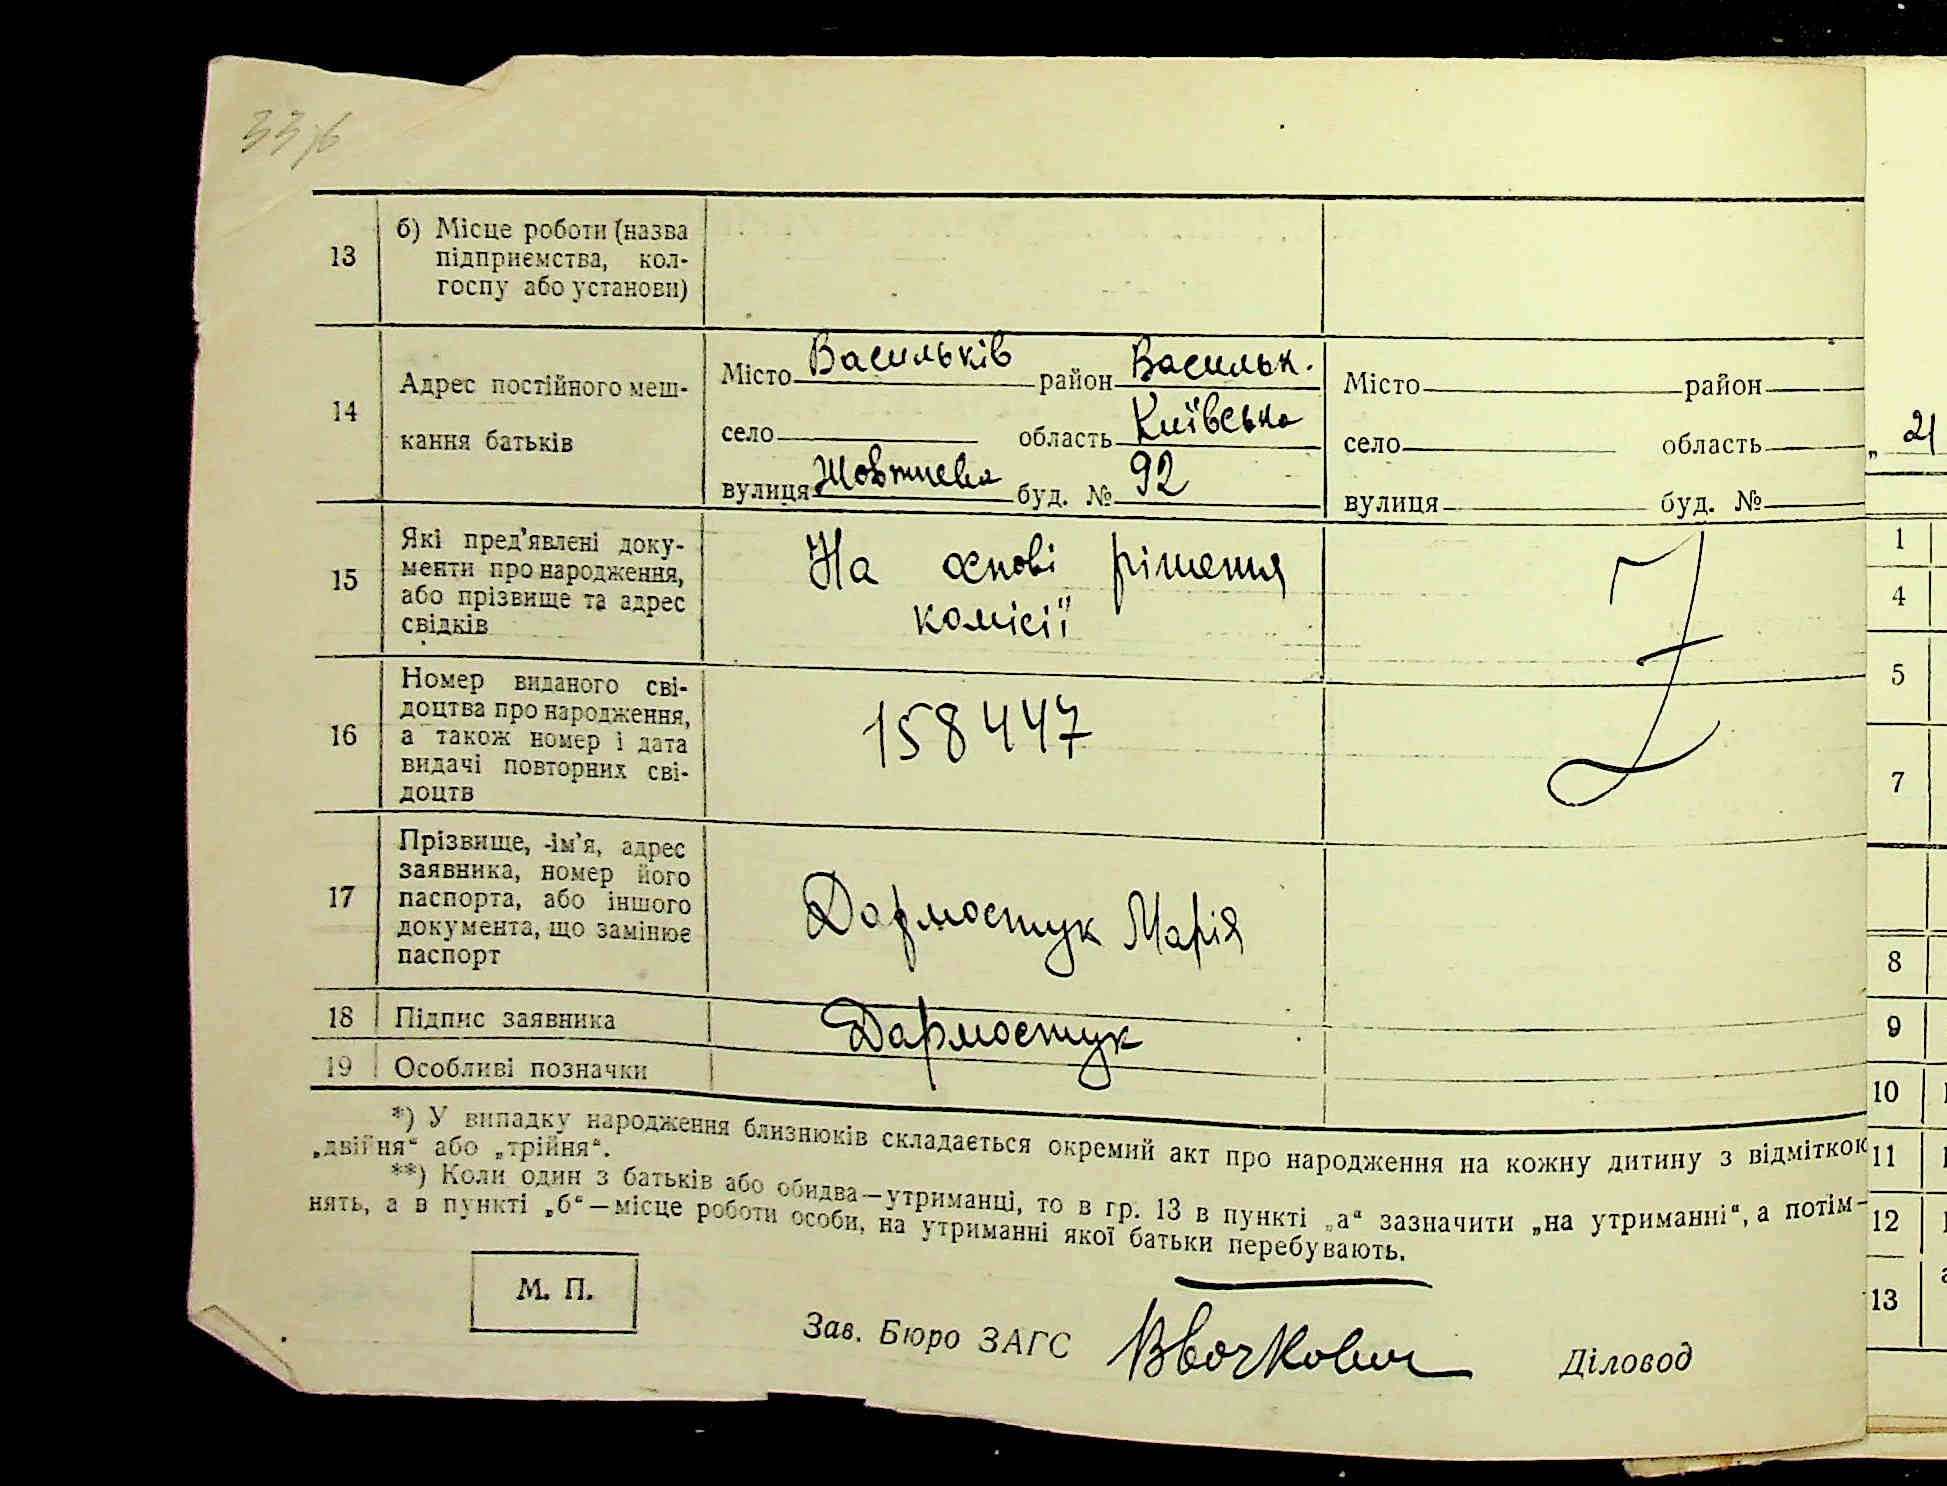 13
б) Місце роботи (назва
підприємства, кол-
госпу або установи)
14
Адрес постійного меш-
кання батьків
Місто Васильків район Васильк.
село область Київська
вулиця Жовтнева буд. № 92
Місто район
село область
вулиця буд. №
15
Які пред'явлені доку-
менти про народження,
або прізвище та адрес
свідків
На основі рішення
комісії
16
Номер виданого сві-
доцтва про народження,
а також номер і дата
видачі повторних сві-
доцтв
158447
17
Прізвище, ім'я, адрес
заявника, номер його
паспорта, або іншого
документа, що замінює
паспорт
Дармостук Марія
18 Підпис заявника
Дармостук
19 Особливі позначки
*) У випадку народження близнюків складається окремий акт про народження на кожну дитину з відміткою
„двійня“ або „трійня“.
**) Коли один з батьків або обидва—утриманці, то в гр. 13 в пункті „а“ зазначити „на утриманні“, а потім—
нять, а в пункті „б“—місце роботи особи, на утриманні якої батьки перебувають.
М. П.
Зав. Бюро ЗАГС
Діловод
„ 21
1
4
5
7
8
9
10
11
12
13